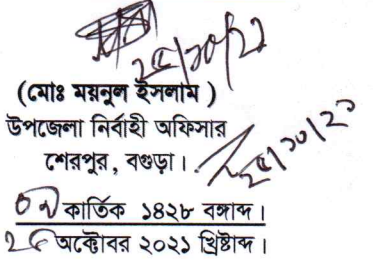 ২৫/১০/২১
(মোঃ ময়নুল ইসলাম )
উপজেলা নির্বাহী অফিসার
শেরপুর, বগুড়া।
২৫/১০/২১
০৯ কার্তিক ১৪২৮ বঙ্গাব্দ।
২৫ অক্টোবর ২০২১ খ্রিষ্টাব্দ।